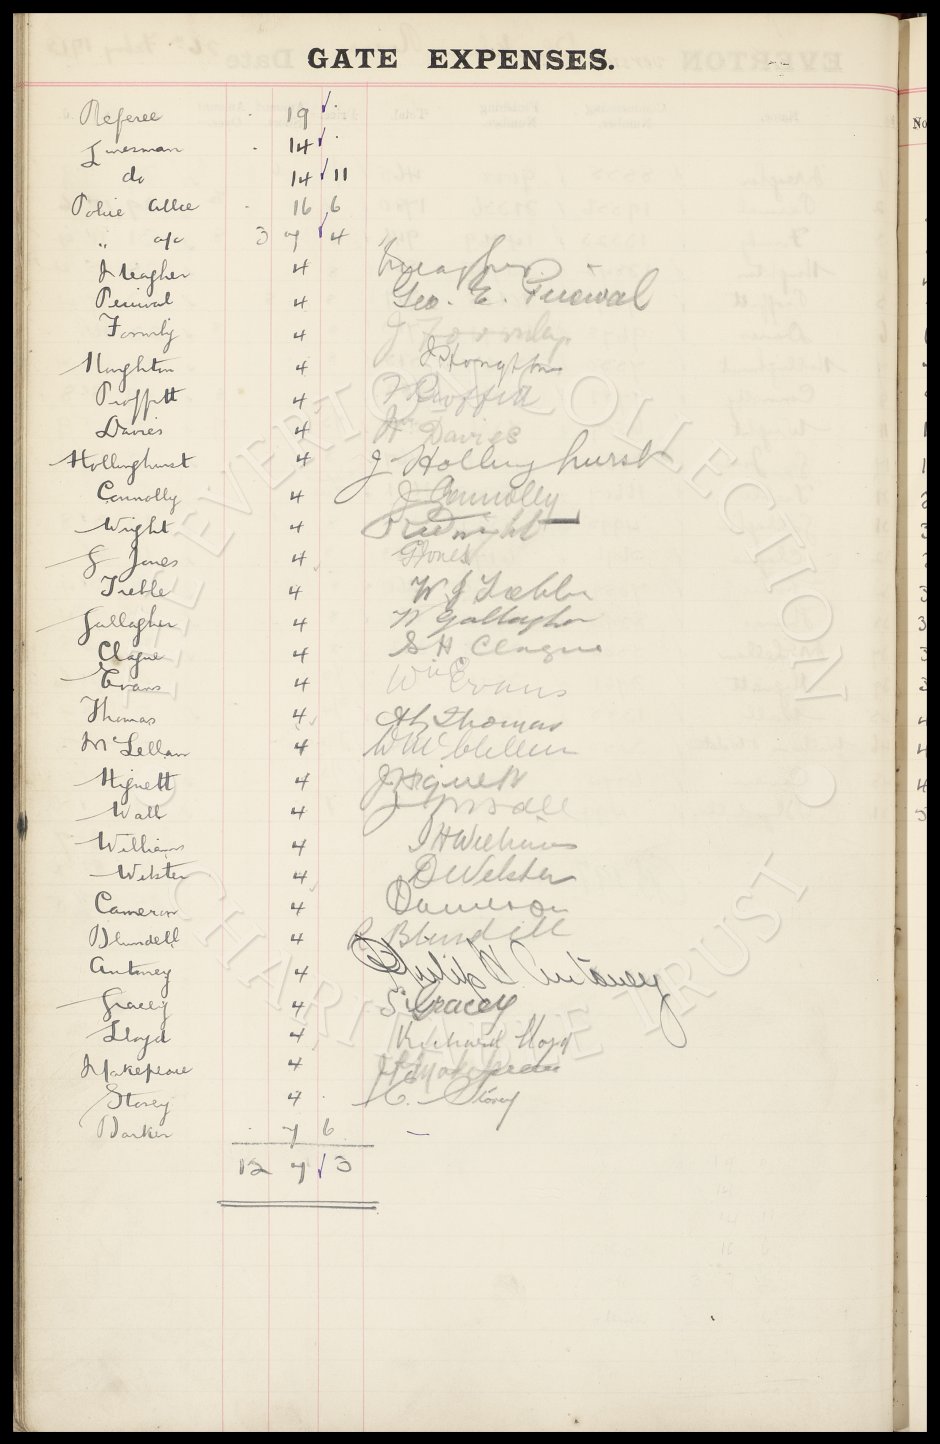 GATE EXPENSES.
Referee 19
Linesman 14
do 14 11
Police Attce 16 6
" a/c 3 7 4
Meagher 4 Meagher
Percival 4 Geo. E. Percival
Formby 4 J Formby
Houghton 4 J Houghton
Proffitt 4 Proffitt
Davies 4 Wm Davies
Hollinghurst 4 J. Hollinghurst
Connolly 4 J Connolly
Wright 4 Wright
G Jones 4 G Jones
Treble 4 W J Treble
Gallagher 4 W Gallagher
Clague 4 S H Clague
Evans 4 Wm Evans
Thomas 4 Thomas
McLellan 4 W McLellan
Hignett 4 J Hignett
Wall 4
Williams 4 J H Williams
Webster 4 D Webster
Cameron 4 Cameron
Blundell 4 Blundell
Antoney 4 Philip Antoney
Gracey 4 S Gracey
Lloyd 4 Richard Lloyd
Makepeace 4 Makepeace
Storey 4 C. Storey
Barker 7 6 —
12 7 3
THE EVERTON COLLECTION CHARITABLE TRUST
No